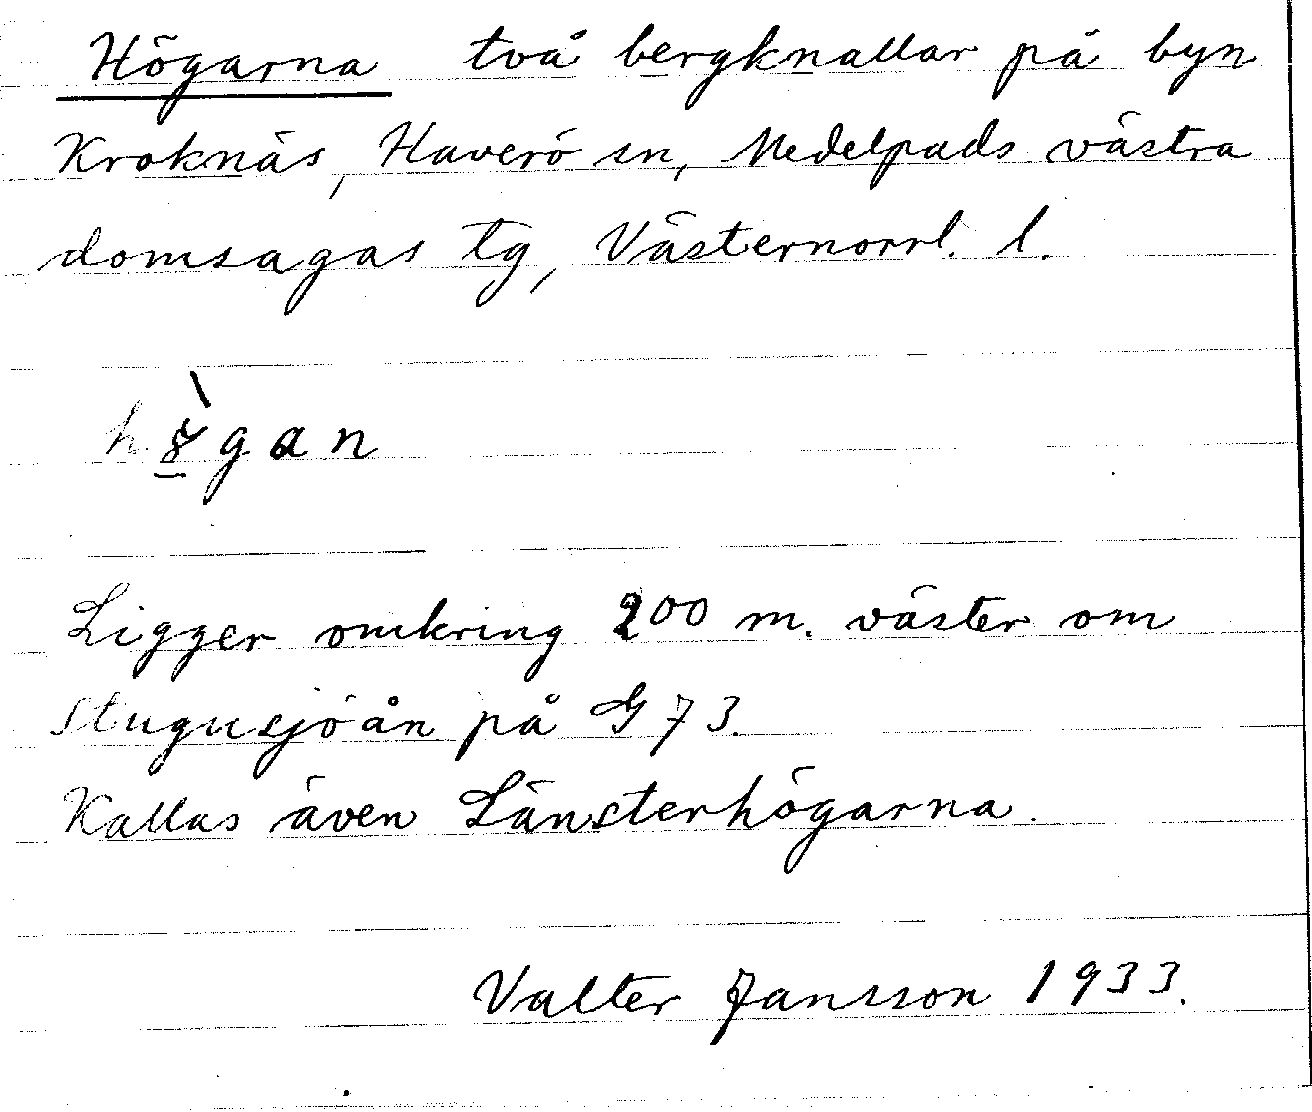 Högarna två bergknallar på byn
Kroknäs, Haverö sn, Medelpads västra
domsagas tg, Västernorrl. l.
Ligger omkring 200 m. väster om
Stugusjöån på G 73.
Kallas även Länsterhögarna.
Valter Jansson 1933.